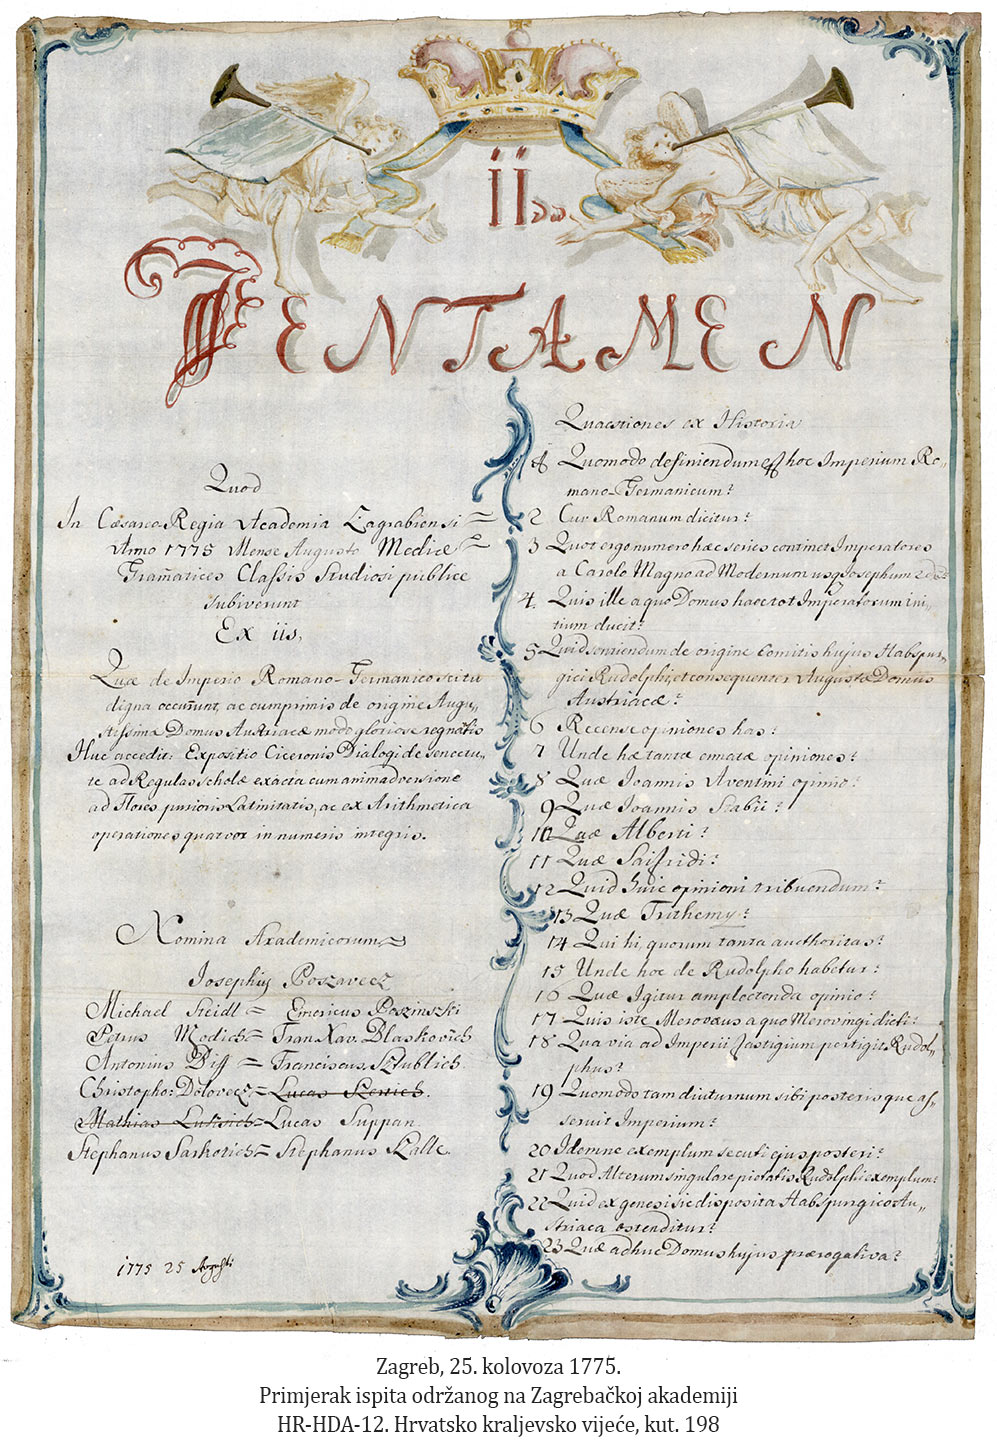 IIdum
TENTAMEN
Quod
In Cæsareo Regia Academia Zagrabiensi =
Anno 1775 Mense Augusto Mediæ =
Gram̃atices Classis Studiosi publice
subiverunt
Ex iis,
Quæ de Imperio Romano-Germanico scitu
digna occurrunt, ac cumprimis de origine Augu,,
stissimæ Domus Austriacæ modo gloriose regnãtis
Huc accedit: Expositio Ciceronis Dialogi de senectu,,
te ad Regulas scholæ exacta cum animadversione
ad Flores purioris Latinitatis, ac ex Arithmetica
operationes quatvor in numeris integris.
Nomina Academicorum
Josephus Poszavecz
Michael Steidl = Emericus Poszinszki
Petrus Modich = Fran Xav. Blaskovich
Antonius Piss = Franciscus Sztublich.
Christopho: Dolovecz = Lucas
Mathias Luksich = Lucas Suppan
Stephanus Sarkotich = Stephanus Szalle.
1775 25 Augusti
Quaestiones ex Historia
1 Quomodo definiendum est hoc Imperium Ro,,
mano-Germanicum?
2 Cur Romanum dicitur?
3 Quot ergo numero hæc series continet Imperatores
a Carolo Magno ad Modernum usq Josephum 2dum?
4. Quis ille a quo Domus haec tot Imperatorum ini,,
tium ducit?
5 Quid sentiendum de origine Comitis hujus Habspur,,
gici Rudolphi, et consequenter Augustæ Domus
Austriacæ?
6 Recense opiniones has?
7 Unde hæ tantæ enatæ opiniones?
8 Quæ Joannis Aventini opinio?
9 Quæ Joannis Stabii?
10 Quæ Alberti?
11 Quæ Saifridi?
12 Quid huic opinioni tribuendum?
13 Quæ Trithemy?
14 Qui hi, quorum tanta aucthoritas?
15 Unde hoc de Rudolpho habetur?
16 Quæ Igitur amplectenda opinio?
17 Quis iste Merovæus a quo Merovingi dicti?
18 Qua via ad Imperii fastigium pertigit Rudol,,
phus?
19 Quomodo tam diuturnum sibi posterisque as,,
seruit Imperium?
20 Idemne exemplum secuti ejus posteri?
21 Quod Alterum singulare pietatis Rudolphi exemplum?
22 Quid ex genesi sic disposita Habspurgico Au,,
striaca ostenditur?
23 Quæ adhuc Domus hujus prærogativa?
Zagreb, 25. kolovoza 1775.
Primjerak ispita održanog na Zagrebačkoj akademiji
HR-HDA-12. Hrvatsko kraljevsko vijeće, kut. 198